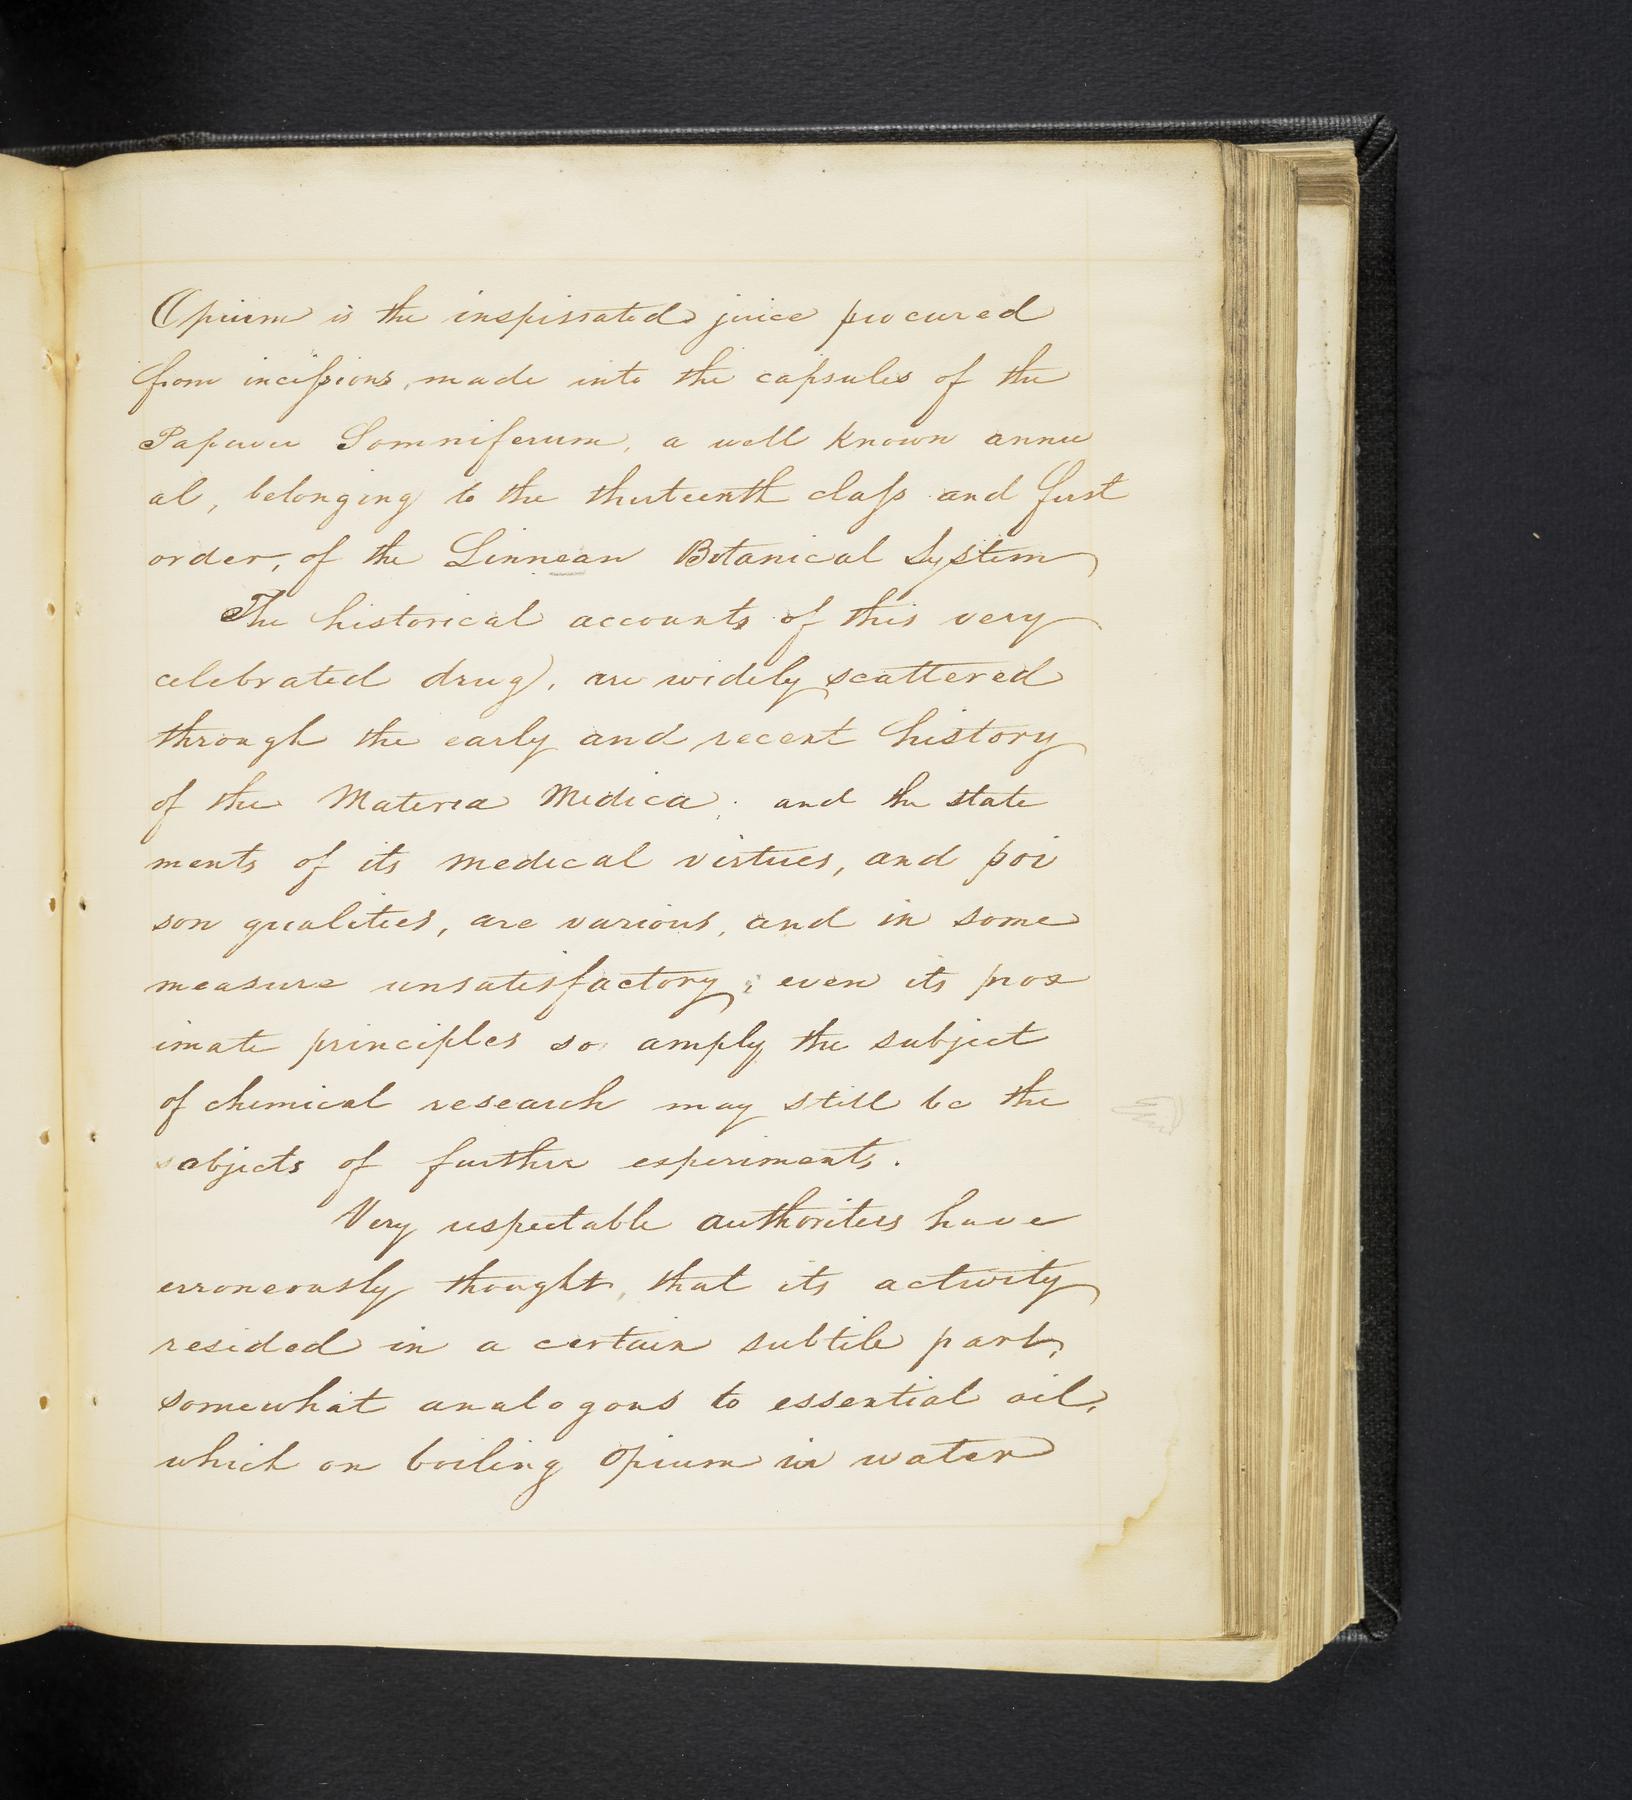 Opium is the inspissated juice procured
from incissions, made into the capsules of the
Papaver Somniferum, a well known annu
al, belonging to the thirteenth class and first
order, of the Linnean Botanical System
The historical accounts of this very
celebrated drug, are widely scattered
through the early and recent history
of the Materia Medica; and the state
ments of its medical virtues, and poi
son qualities, are various, and in some
measure unsatisfactory; even its prox
imate principles so amply the subject
of chemical research may still be the
subjects of further experiments.
Very respectable authorities have
erroneously thought, that its activity
resided in a certain subtile part,
somewhat analogous to essential oil,
which on boiling Opium in water